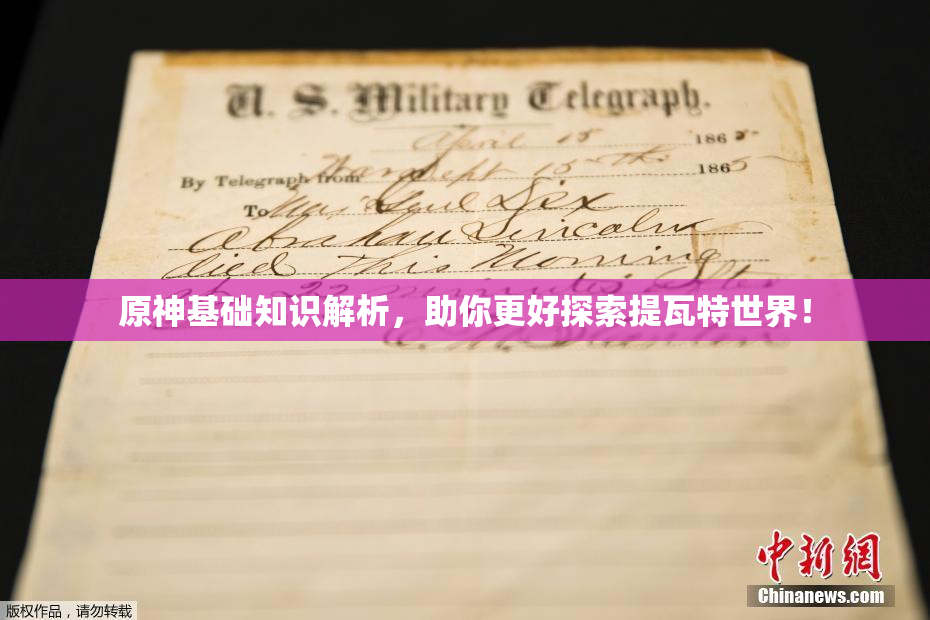 U. S. Military Telegraph.
April 15 1865
By Telegraph from War Dept 15th 1865
To Maj Genl Dix
Abraham Lincoln
died This Morning
at 22 minutes after
原神基础知识解析，助你更好探索提瓦特世界！
E. M. Stanton
中新网
Chinanews.com
版权作品，请勿转载